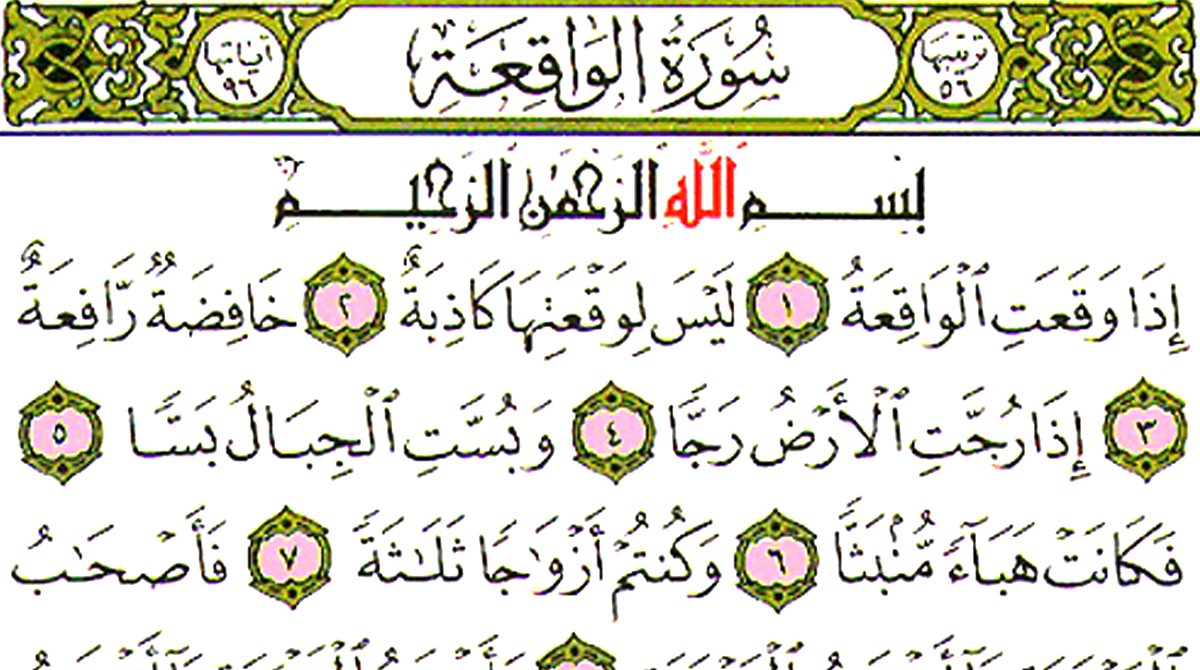 ترتيبها ٥٦ سُورَةُ الوَاقِعَة آياتها ٩٦
بِسْمِ اللَّهِ الرَّحْمَٰنِ الرَّحِيمِ
إِذَا وَقَعَتِ ٱلْوَاقِعَةُ ١ لَيْسَ لِوَقْعَتِهَا كَاذِبَةٌ ٢ خَافِضَةٌ رَّافِعَةٌ
٣ إِذَا رُجَّتِ ٱلْأَرْضُ رَجًّا ٤ وَبُسَّتِ ٱلْجِبَالُ بَسًّا ٥
فَكَانَتْ هَبَآءً مُّنۢبَثًّا ٦ وَكُنتُمْ أَزْوَٰجًا ثَلَٰثَةً ٧ فَأَصْحَٰبُ